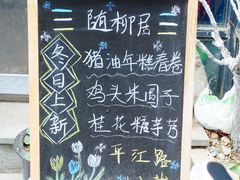 随柳居
冬日上新
猪油年糕春卷
鸡头米圆子
桂花糖芋艿
平江路